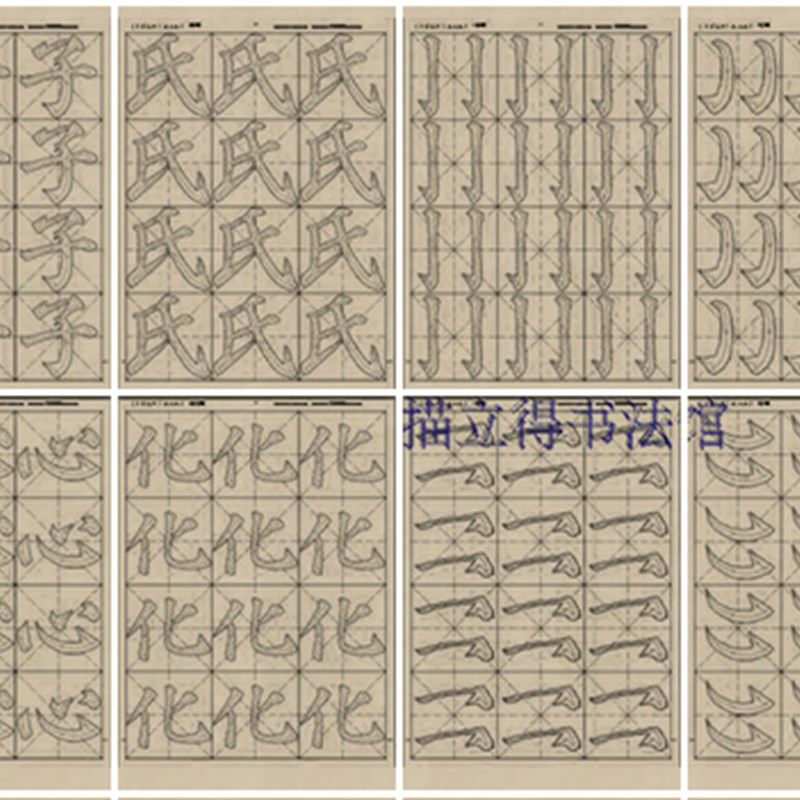 子
子
子
子
氏氏氏
氏氏氏
氏氏氏
氏氏氏
描立得书法馆
心
心
心
心
化化化
化化化
化化化
化化化